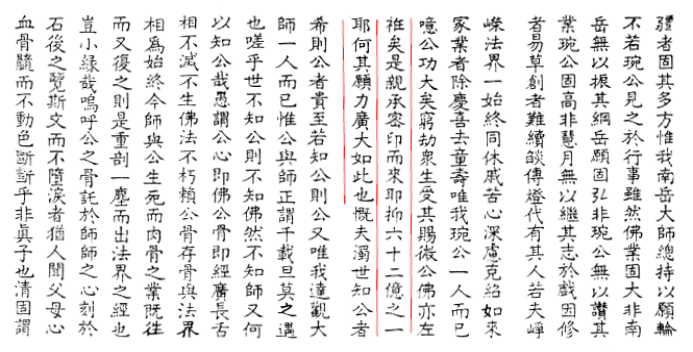 彊者固其多方惟我南岳大師總持以願輪
不若琬公見之於行事雖然佛業固大非南
岳無以振其綱岳願固弘非琬公無以讚其
業琬公固高非慧月無以繼其志於戲因修
者易草創者難續燄傳燈代有其人若夫崢
嶸法界一始終同休戚苦心深慮克紹如來
家業者除慶喜去童壽唯我琬公一人而已
噫公功大矣窮劫衆生受其賜微公佛亦左
袵矣是親承密印而來耶抑六十二億之一
耶何其願力廣大如此也慨夫濁世知公者
希則公者貴至若知公則公又唯我達觀大
師一人而已惟公與師正謂千載旦莫之遇
也嗟乎世不知公則不知佛然不知師又何
以知公哉愚謂公心即佛公骨即經廣長舌
相不滅不生佛法不朽賴公骨存骨與法界
相為始終今師與公生死而肉骨之業既往
而又復之則是重剖一塵而出法界之經也
豈小緣哉嗚呼公之骨託於師師之心刻於
石後之覽斯文而不墮淚者猶人聞父母心
血骨髓而不動色斷斷乎非眞子也清固謂